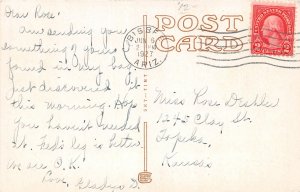 Dear Rose:
Am sending you
something of yours I
found in my bag.
Just discovered it
this morning. Hope
you haven't needed
it. leg is better.
We are O.K.
Love,
Gladys
12-
POST
CARD
BISBEE
JUN 6
1927
ARIZ.
Miss Rose
1245 Clay St.
Topeka
Kansas